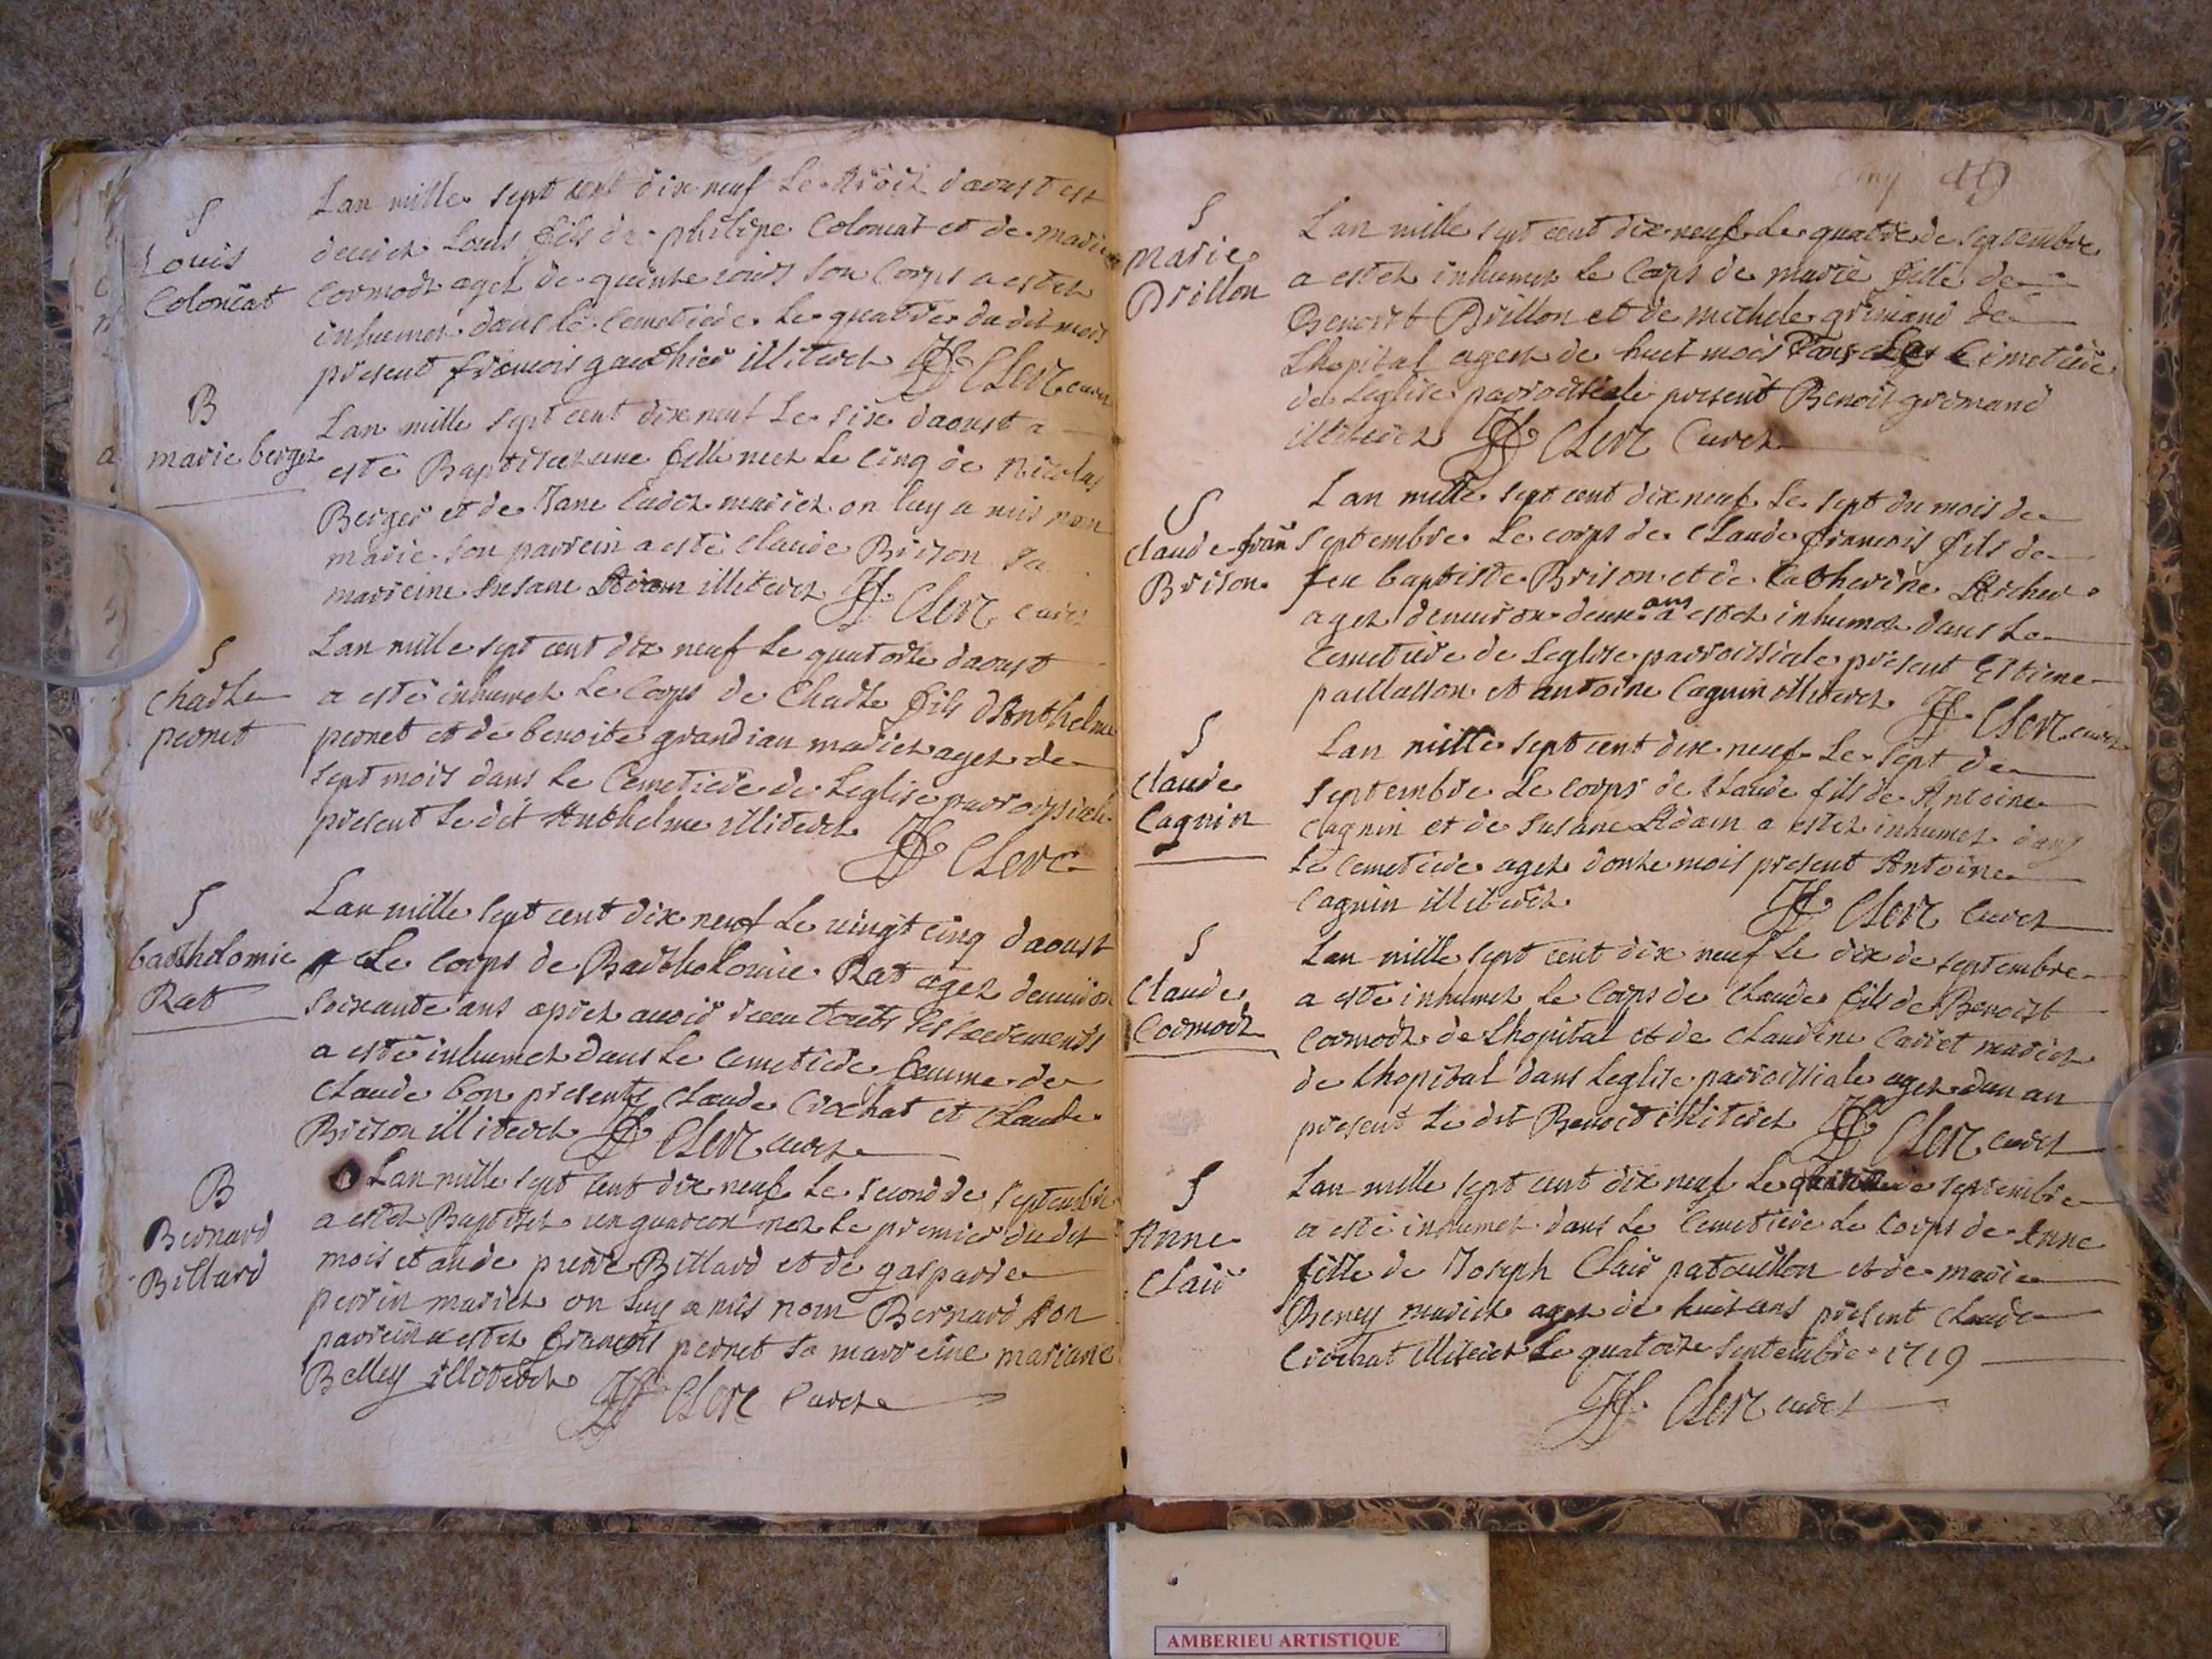 S
Louis
Coloncat
Lan mille sept cent dix neuf le troiz daoust est
decedez Louis fils de philipe Coloncat et de marie
Cormodz agez de quinze jours son Corps a estez
inhumez dans le Cemetiere le quatre du dit mois
present francois gauthier illiterez Clerc curez
B
marie berger
Lan mille sept cent dix neuf Le six daoust a
esté Baptisez une fille neez Le cinq de Nicolas
Berger et de Jane Cadez mariez on luy a mis nom
marie son parrein a esté claude Brison sa
marreine susane Adam illiterez Clerc curez
S
Charle
pernet
Lan mille sept cent dix neuf Le quatorze daoust
a esté inhumez Le Corps de Charle fils dAnthelme
pernet et de benoite grandian mariez agez de
sept mois dans Le Cemetiere de Leglise parroissiale
present Le dit Anthelme illiterez Clerc
S
bartholomie
Rat
Lan mille sept cent dix neuf Le vingt cinq daoust
Le corps de Bartholomie Rat agez denuiron
soixante ans aprez auoir receu touts ses sacrements
a esté inhumez dans Le Cemetiere femme de
Claude bon presents Claude Crochat et Claude
Brison illiterez Clerc curez
B
Bernard
Billard
Lan mille sept cent dix neuf Le second de septembre
a estez Baptisez un guarcon nez Le premier du dit
mois et an de pierre Billard et de gasparde
perrin mariez on luy a mis nom Bernard son
parrein a estez francois pernet sa marreine mariane
Belley illiterez Clerc Curez
S
marie
Drillon
Lan mille sept cent dix neuf Le quatre de septembre
a estez inhumez Le Corps de marie fille de
Benoist Drillon et de michele grimand de
Lhopital agez de huet mois dans Le Cimetiere
de Leglise parroissiale present Benoit grimand
illiterez Clerc Curez
S
claude fran
Brison
Lan mille sept cent dix neuf Le sept du mois de
septembre Le corps de Claude francois fils de
feu baptiste Brison et de Catherine Archer
agez denuiron deux ans a estez inhumez dans Le
Cemetiere de Leglise parroissiale present Estiene
paillasson et antoine Cagnin illiterez Clerc curez
S
Claude
Cagnin
Lan mille sept cent dix neuf Le sept de
septembre Le corps de Claude fils de Antoine
Cagnin et de susane Adam a estez inhumez dans
Le Cemetiere agez donze mois present Antoine
Cagnin illiterez Clerc Curez
S
Claude
Cormodz
Lan mille sept cent dix neuf Le dix de septembre
a esté inhumez Le Corps de Claude fils de Benoist
Cormodz de Lhopital et de Claudine Carret mariez
de Lhopital dans Leglise parroissiale agez dun an
present Le dit Benoit illiterez Clerc curez
S
Anne
Clair
Lan mille sept cent dix neuf Le de septembre
a esté inhumez dans Le Cemetiere Le Corps de Anne
fille de Joseph Clair patouillon et de marie
Beney mariez agez de huit ans present Claude
Crochat illiterez Le quatorze septembre 1719
Clerc curez
AMBERIEU ARTISTIQUE